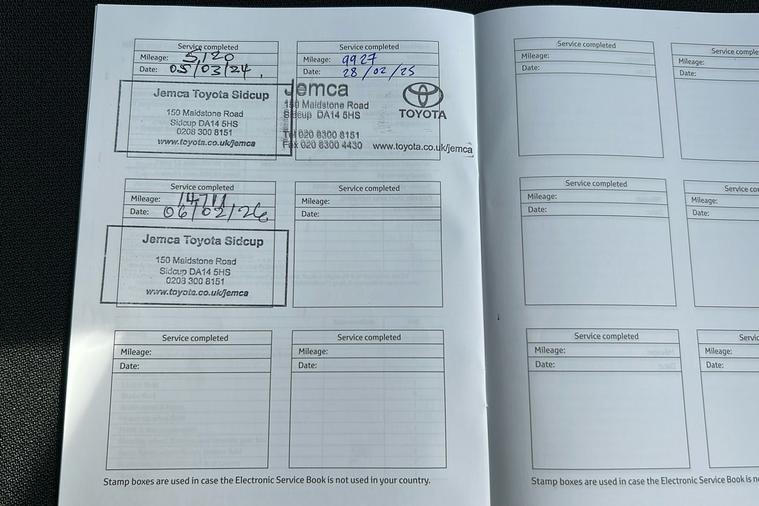 Service completed
Mileage: 5,120
Date: 05/03/24
Jemca Toyota Sidcup
150 Maidstone Road
Sidcup DA14 5HS
0208 300 8151
www.toyota.co.uk/jemca
Service completed
Mileage: 9927
Date: 28/02/25
Jemca
150 Maidstone Road
Sidcup DA14 5HS
Tel 020 8300 8151
Fax 020 8300 4430 www.toyota.co.uk/jemca
TOYOTA
Service completed
Mileage:
Date: 06/02/26
Jemca Toyota Sidcup
150 Maidstone Road
Sidcup DA14 5HS
0208 300 8151
www.toyota.co.uk/jemca
Service completed
Mileage:
Date:
Service completed
Mileage:
Date:
Service completed
Mileage:
Date:
Stamp boxes are used in case the Electronic Service Book is not used in your country.
Service completed
Mileage:
Date:
Service comple
Mileage:
Date:
Service completed
Mileage:
Date:
Service co
Mileage:
Date:
Service completed
Mileage:
Date:
Servic
Mileage:
Date:
Stamp boxes are used in case the Electronic Service Book is n